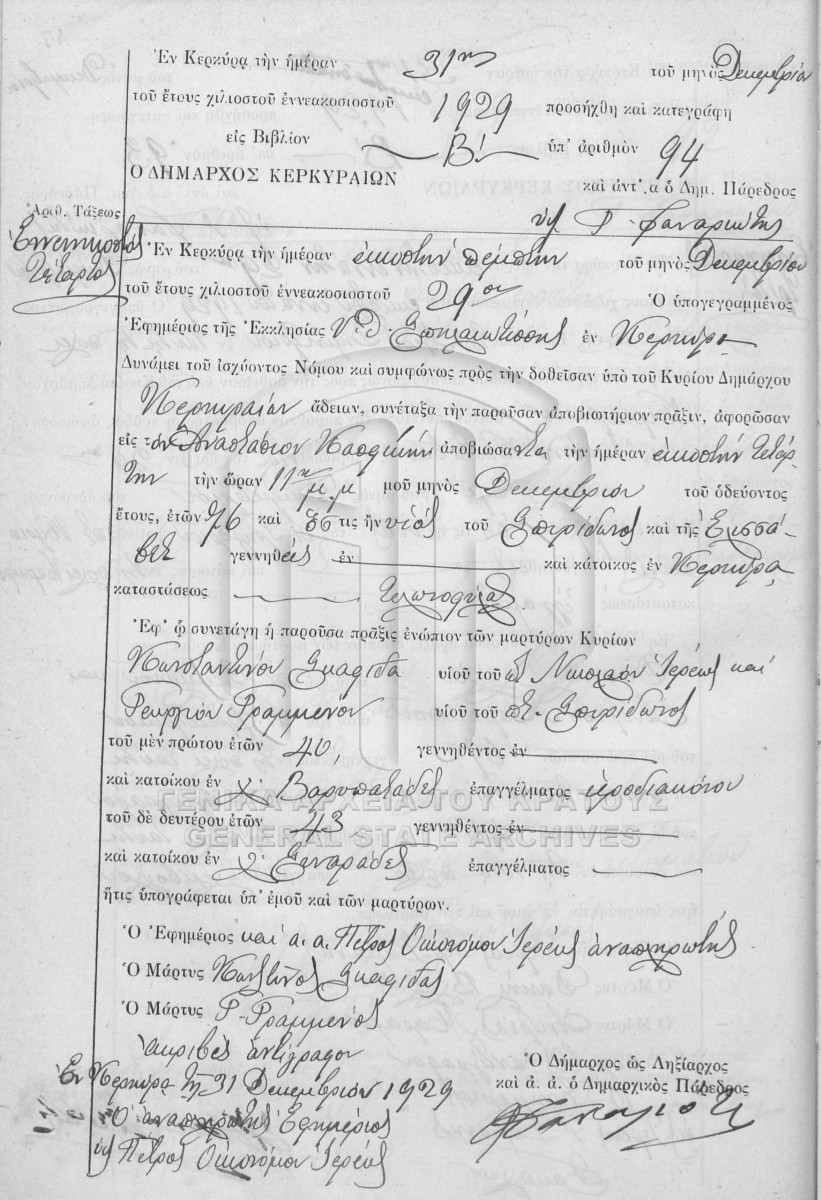 Ἐν Κερκύρᾳ τὴν ἡμέραν 31ην τοῦ μηνὸς Δεκεμβρίου
τοῦ ἔτους χιλιοστοῦ ἐννεακοσιοστοῦ 1929 προσήχθη καὶ κατεγράφη
εἰς Βιβλίον Β! ὑπ' ἀριθμὸν 94
Ο ΔΗΜΑΡΧΟΣ ΚΕΡΚΥΡΑΙΩΝ καὶ ἀντ'. α ὁ Δημ. Πάρεδρος
Ἀριθ. Τάξεως
Ἐννενηκοστὸς
Τέταρτος
Ἐν Κερκύρᾳ τὴν ἡμέραν εἰκοστὴν πέμπτην τοῦ μηνὸς Δεκεμβρίου
τοῦ ἔτους χιλιοστοῦ ἐννεακοσιοστοῦ 29ου Ὁ ὑπογεγραμμένος
Ἐφημέριος τῆς Ἐκκλησίας Υ. Θ. Σπηλαιωτίσσης ἐν Κερκύρᾳ
Δυνάμει τοῦ ἰσχύοντος Νόμου καὶ συμφώνως πρὸς τὴν δοθεῖσαν ὑπὸ τοῦ Κυρίου Δημάρχου
Κερκυραίων ἄδειαν, συνέταξα τὴν παροῦσαν ἀποβιωτήριον πρᾶξιν, ἀφορῶσαν
εἰς τὸν Ἀναστάσιον ἀποβιώσαντα τὴν ἡμέραν εἰκοστὴν τετάρ-
την τὴν ὥραν 11ην μ.μ μοῦ μηνὸς Δεκεμβρίου τοῦ ὁδεύοντος
ἔτους, ἐτῶν 76 καὶ ὅστις ἦν υἱὸς τοῦ Σπυρίδωνος καὶ τῆς Ἐλισσά-
βετ γεννηθεὶς ἐν καὶ κάτοικος ἐν Κερκύρᾳ
καταστάσεως
Ἐφ' ᾧ συνετάγη ἡ παροῦσα πρᾶξις ἐνώπιον τῶν μαρτύρων Κυρίων
Κωνσταντίνου Σκαφιδᾶ υἱοῦ τοῦ Νικολάου Ἱερέως καὶ
Γεωργίου Γραμμένου υἱοῦ τοῦ Σπυρίδωνος
τοῦ μὲν πρώτου ἐτῶν 40 γεννηθέντος ἐν
καὶ κατοίκου ἐν χ. Βαρυπατάδες ἐπαγγέλματος ἱεροδιακόνου
ΓΕΝΙΚΑ ΑΡΧΕΙΑ ΤΟΥ ΚΡΑΤΟΥΣ
τοῦ δὲ δευτέρου ἐτῶν 43 γεννηθέντος ἐν
GENERAL STATE ARCHIVES
καὶ κατοίκου ἐν χ. Σιναράδες ἐπαγγέλματος
ἥτις ὑπογράφεται ὑπ' ἐμοῦ καὶ τῶν μαρτύρων.
Ὁ Ἐφημέριος καὶ α. α. Πέτρος Οἰκονόμου Ἱερεὺς ἀναπληρωτής
Ὁ Μάρτυς Κωνστῖνος Σκαφιδᾶς
Ὁ Μάρτυς Γ. Γραμμένος
ἀκριβὲς ἀντίγραφον
Ἐν Κερκύρᾳ τῇ 31 Δεκεμβρίου 1929
Ὁ ἀναπληρωτὴς Ἐφημέριος
Πέτρος Οἰκονόμου Ἱερεὺς
Ὁ Δήμαρχος ὡς Ληξίαρχος
καὶ ἀ. ἀ. ὁ Δημαρχικὸς Πάρεδρος